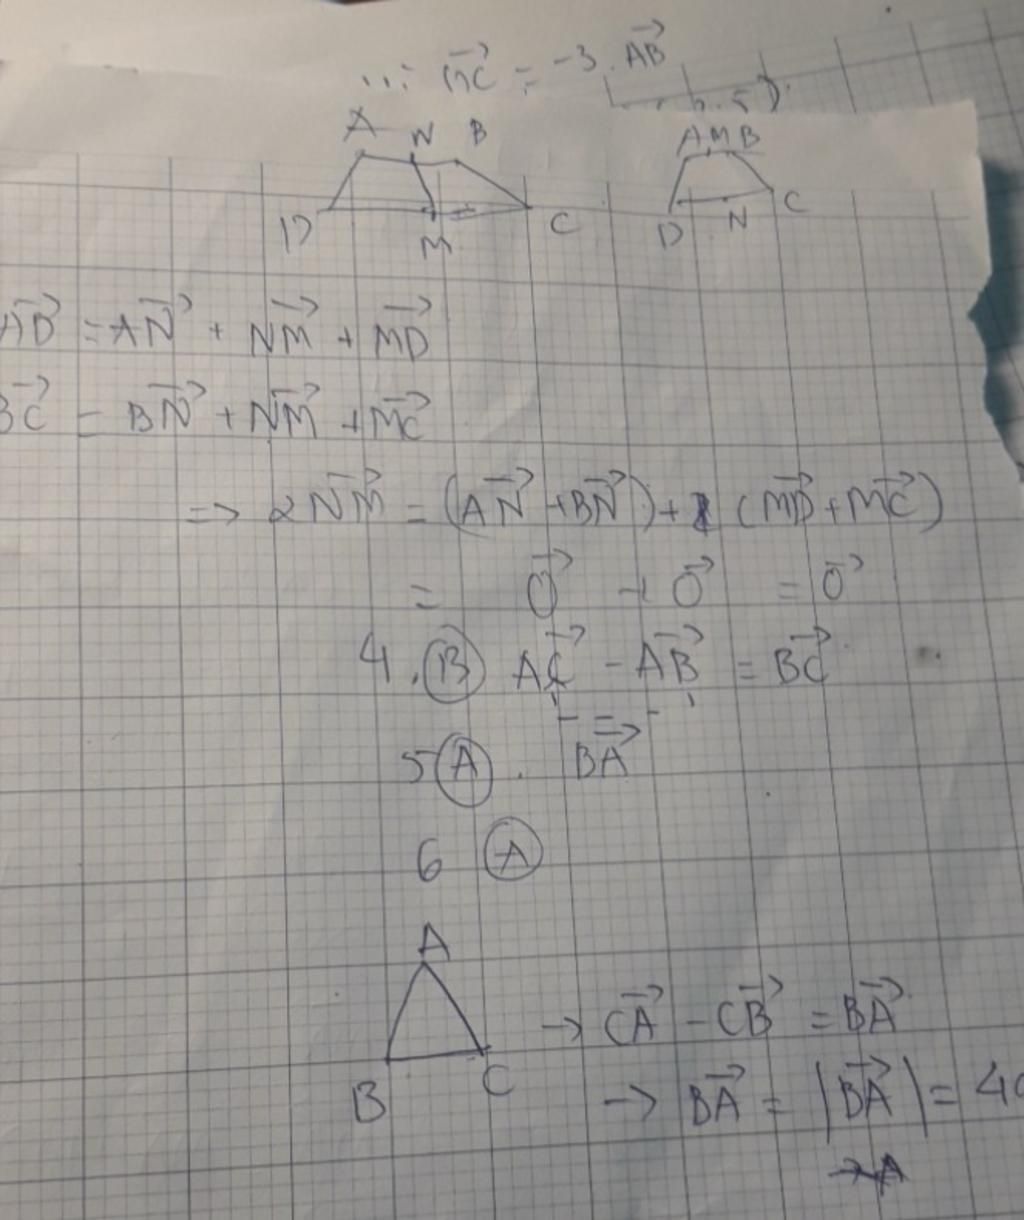 = -3. AB→
A N B A M B
D M C D N C
AD→ = AN→ + NM→ + MD→
BC→ = BN→ + NM→ + MC→
=> 2NM→ = (AN→ + BN→) + (MD→ + MC→)
= 0→ + 0→ = 0→
4. B AC→ - AB→ = BC→
5 A. BA→
6 A
A
→ CA→ - CB→ = BA→
B C
→ BA→ = |BA→| = 4a
→A